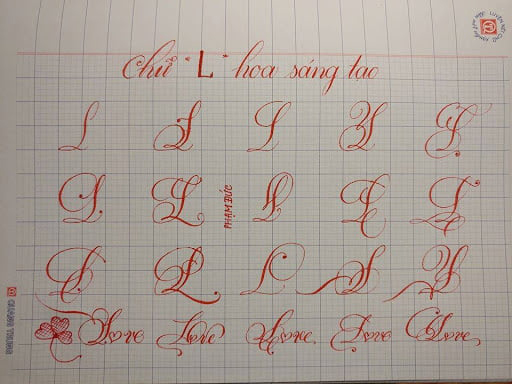 Chữ "L" hoa sáng tạo
L L L L L
L L L L L
PHẠM ĐỨC
L L L L L
Love Love Love Love Love